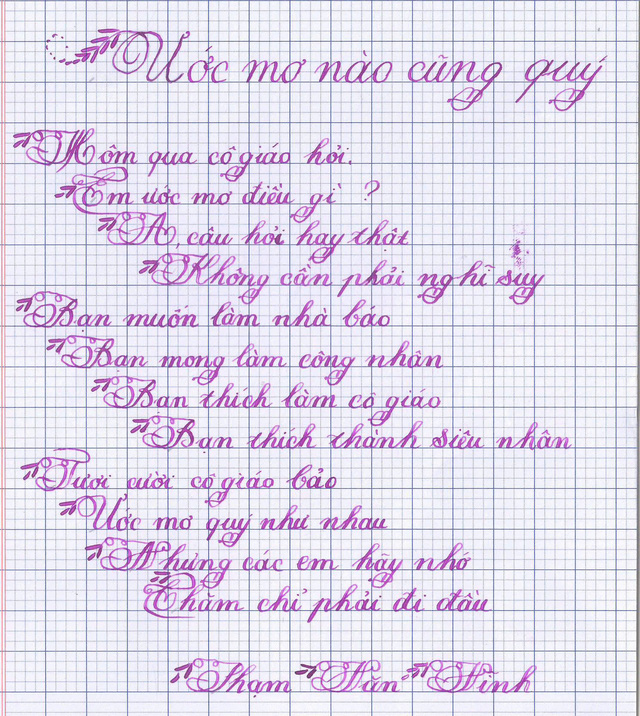 Ước mơ nào cũng quý
Hôm qua cô giáo hỏi.
Em ước mơ điều gì ?
A, câu hỏi hay thật
Không cần phải nghĩ suy
Bạn muốn làm nhà báo
Bạn mong làm công nhân
Bạn thích làm cô giáo
Bạn thích thành siêu nhân
Tươi cười cô giáo bảo
Ước mơ quý như nhau
Nhưng các em hãy nhớ
Chăm chỉ phải đi đầu
Phạm Văn Tĩnh